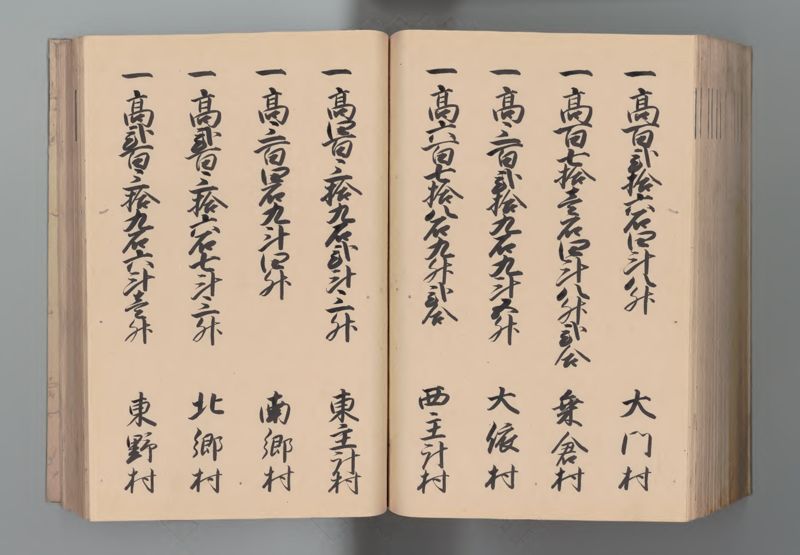 一高百弐拾六石四斗八升 大門村
一高百七拾壱石四斗八升弐合 乗倉村
一高三百弐拾九石九斗五升 大依村
一高六百七拾八石九升弐合 西主計村
一高四百三拾九石弐斗三升 東主計村
一高三百四石九斗四升 南郷村
一高弐百三拾六石七斗三升 北郷村
一高弐百三拾九石六斗壱升 東野村